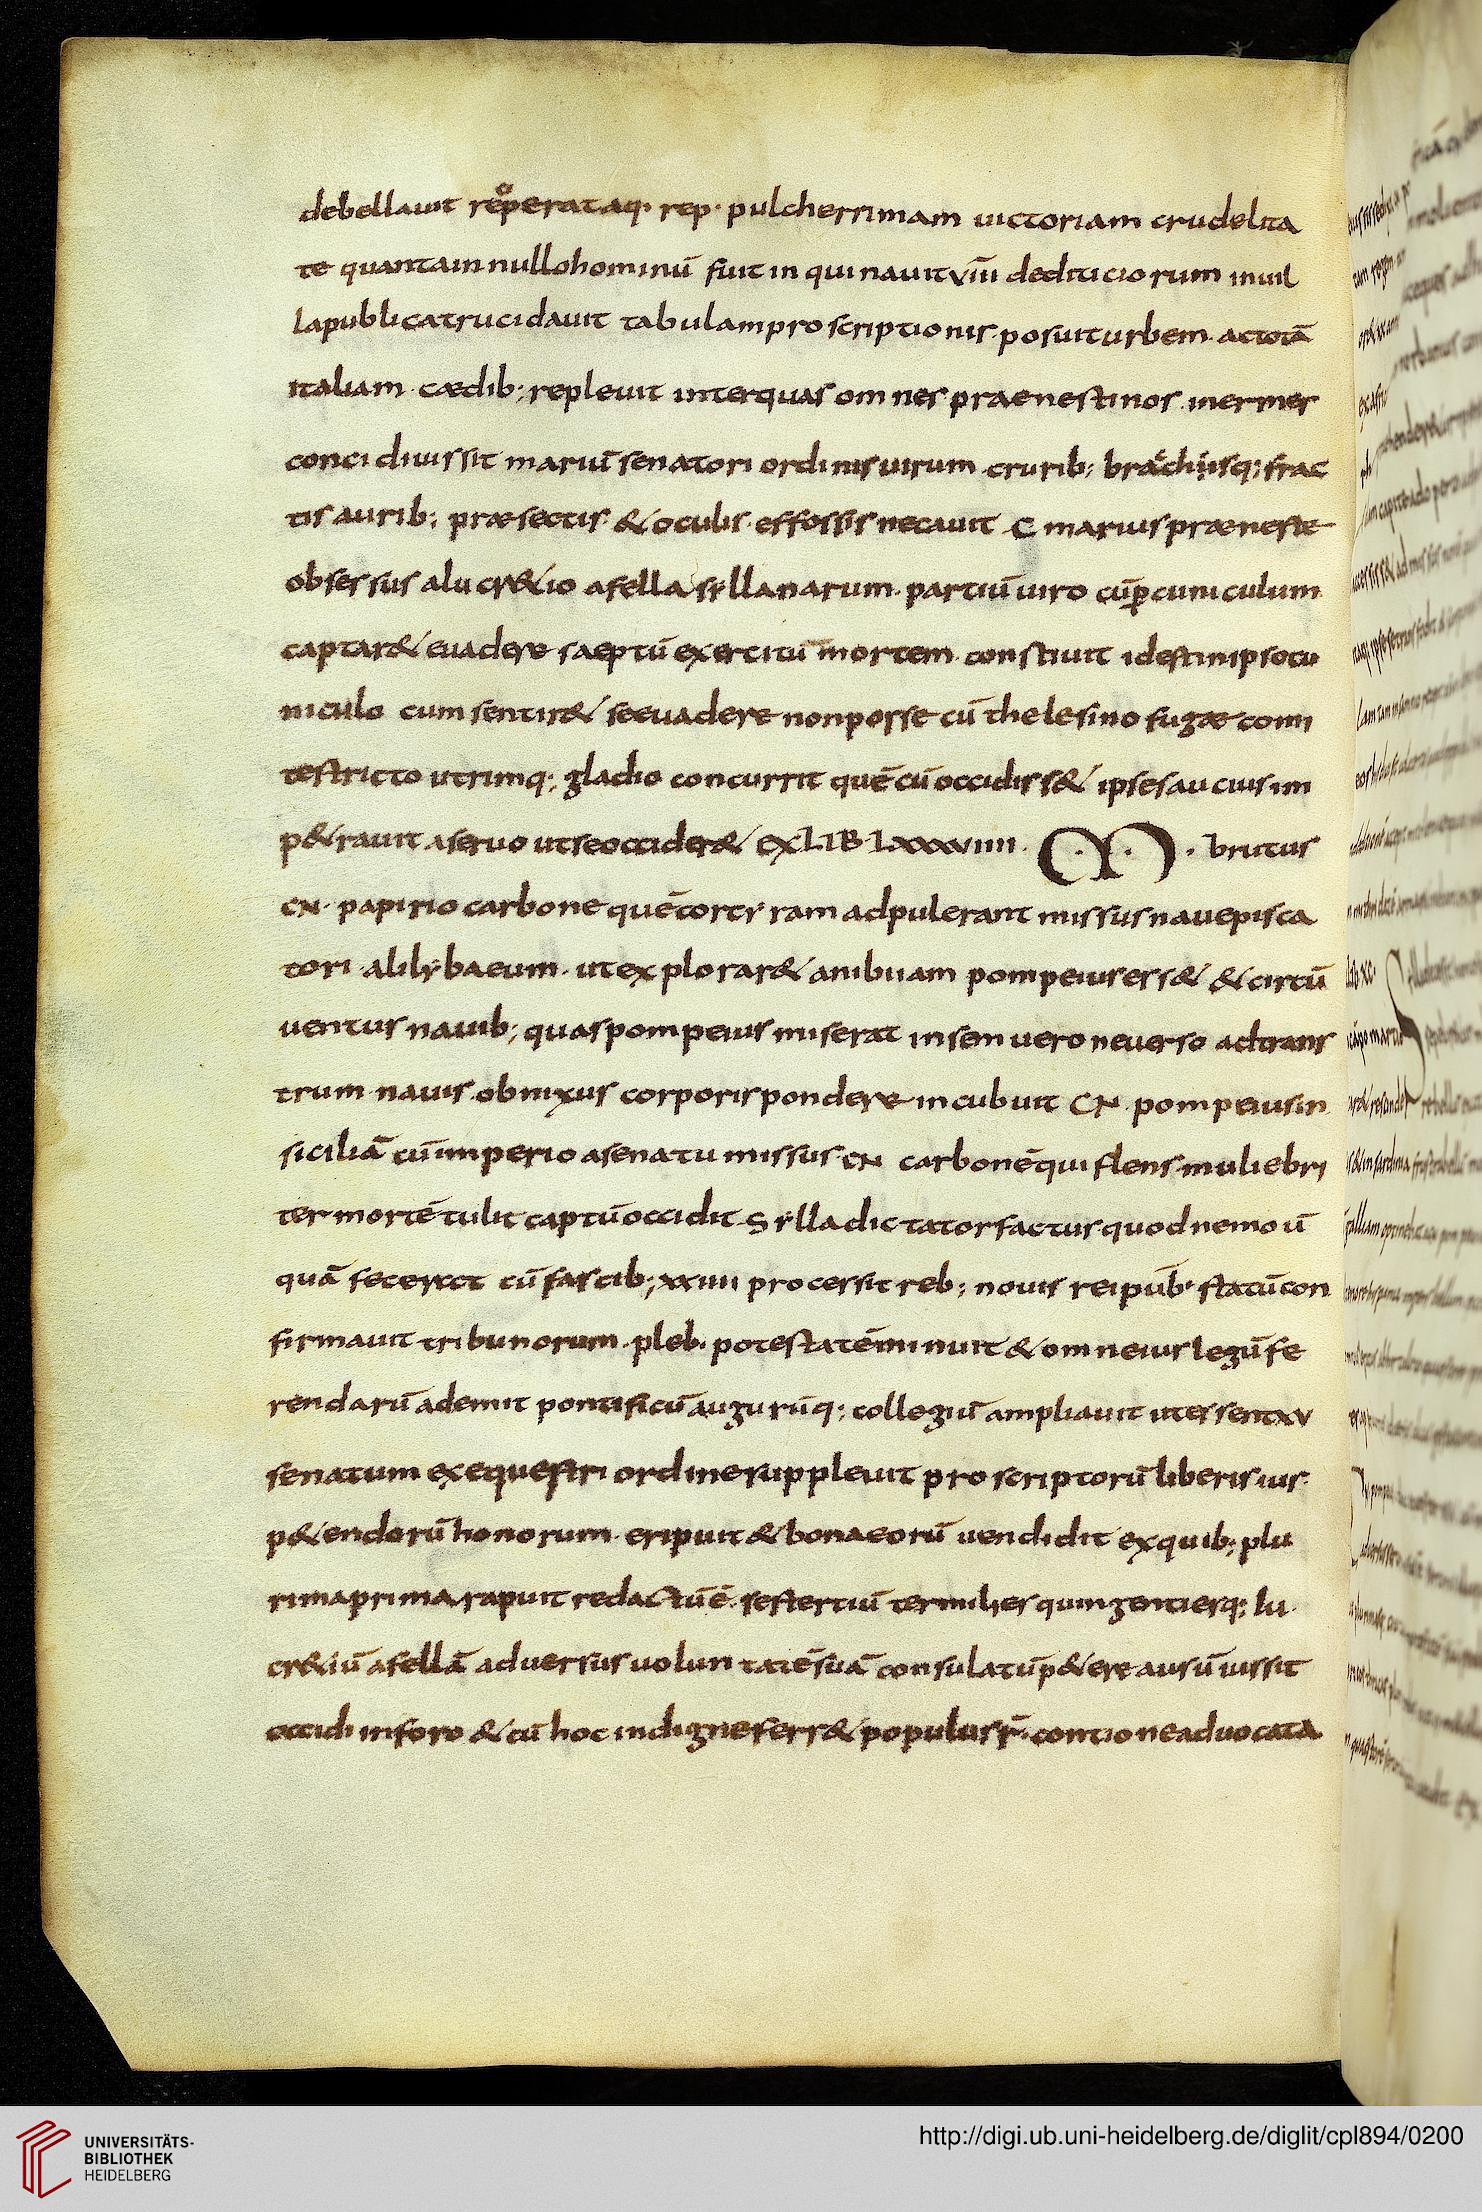 debellauit reͦperataq· rep· pulcherrimam uictoriam crudelita
te quantam in nullo hominū fuit inquinauit vıııı dediticiorum inuil
la publica trucidauit tabulam proscriptionis posuit urbem ac totā
italiam cædib; repleuit inter quas omnes praenestinos inermes
concidi iussit mariū senatori ordinis uirum crurib; brachiisq; frac
tis aurib; præsectis & oculis effossis necauit C marius præneste
obsessus a lucr&io afella syllanarum partiū uiro cū p cuniculum
captar& euadere saeptū exercitū mortem consciuit id est in ipso cu
niculo cum sentir& se euadere non posse cū thelesino fugæ comi
te stricto utrimq; gladio concurrit quē cū occidiss& ipse saucius im
p&rauit a seruo ut se occider& EX LIB LXXXVIIII M· brutus
CN· papirio carbone quē corcyram adpulerant missus naue pisca
tori a lilybaeum· ut explorar& an ibi iam pompeius ess& & circū
uentus nauib; quas pompeius miserat in sem uerone uerso ad trans
trum nauis obnixus corporis pondere incubuit CN pompeius in
siciliā cū imperio a senatu missus CN carbonē qui flens muliebri
ter mortē tulit captū occidit Sylla dictator factus quod nemo ū
quā fecerat cū fascib; xxiiii processit reb; nouis reipub· statū con
firmauit tribunorum pleb· potestatē minuit & omne ius legū fe
rendarū ademit pontificū augurūq; collegiū ampliauit ut essent xv
senatum ex equestri ordine suppleuit proscriptorū liberis ius
p&endorū honorum eripuit & bona eorū uendidit ex quib; plu
rima prima rapuit redactū ē sestertiū ter milies quingenties q; lu
cr&iū afellā aduersus uoluntatē suā consulatū p&ere ausū iussit
occidi in foro & cū hoc indigne ferr& populus r̄· contione aduocata
UNIVERSITÄTS-
BIBLIOTHEK
HEIDELBERG
http://digi.ub.uni-heidelberg.de/diglit/cpl894/0200